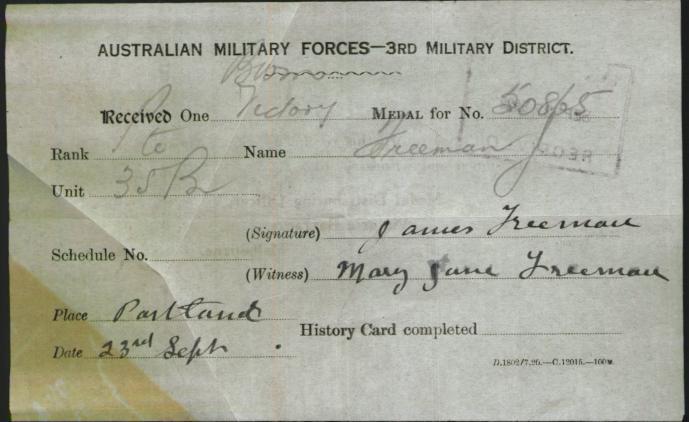 AUSTRALIAN MILITARY FORCES—3RD MILITARY DISTRICT.
Received One Victory MEDAL for No. 50865
Rank Pte Name Freeman J
Unit 35 Bn
(Signature) James Freeman
Schedule No.
(Witness) Mary Jane Freeman
Place Portland
History Card completed
Date 23rd Sept.
D.1802/7.20.—C.12015.—100M.